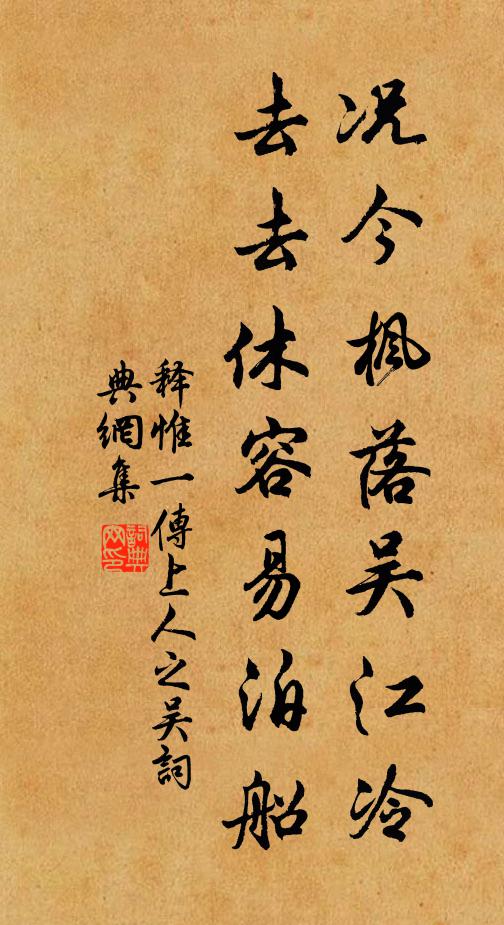 况今枫落吴江冷
去去休容易泊船
释惟一傳上人之吴詞
典網集
詞典
网印